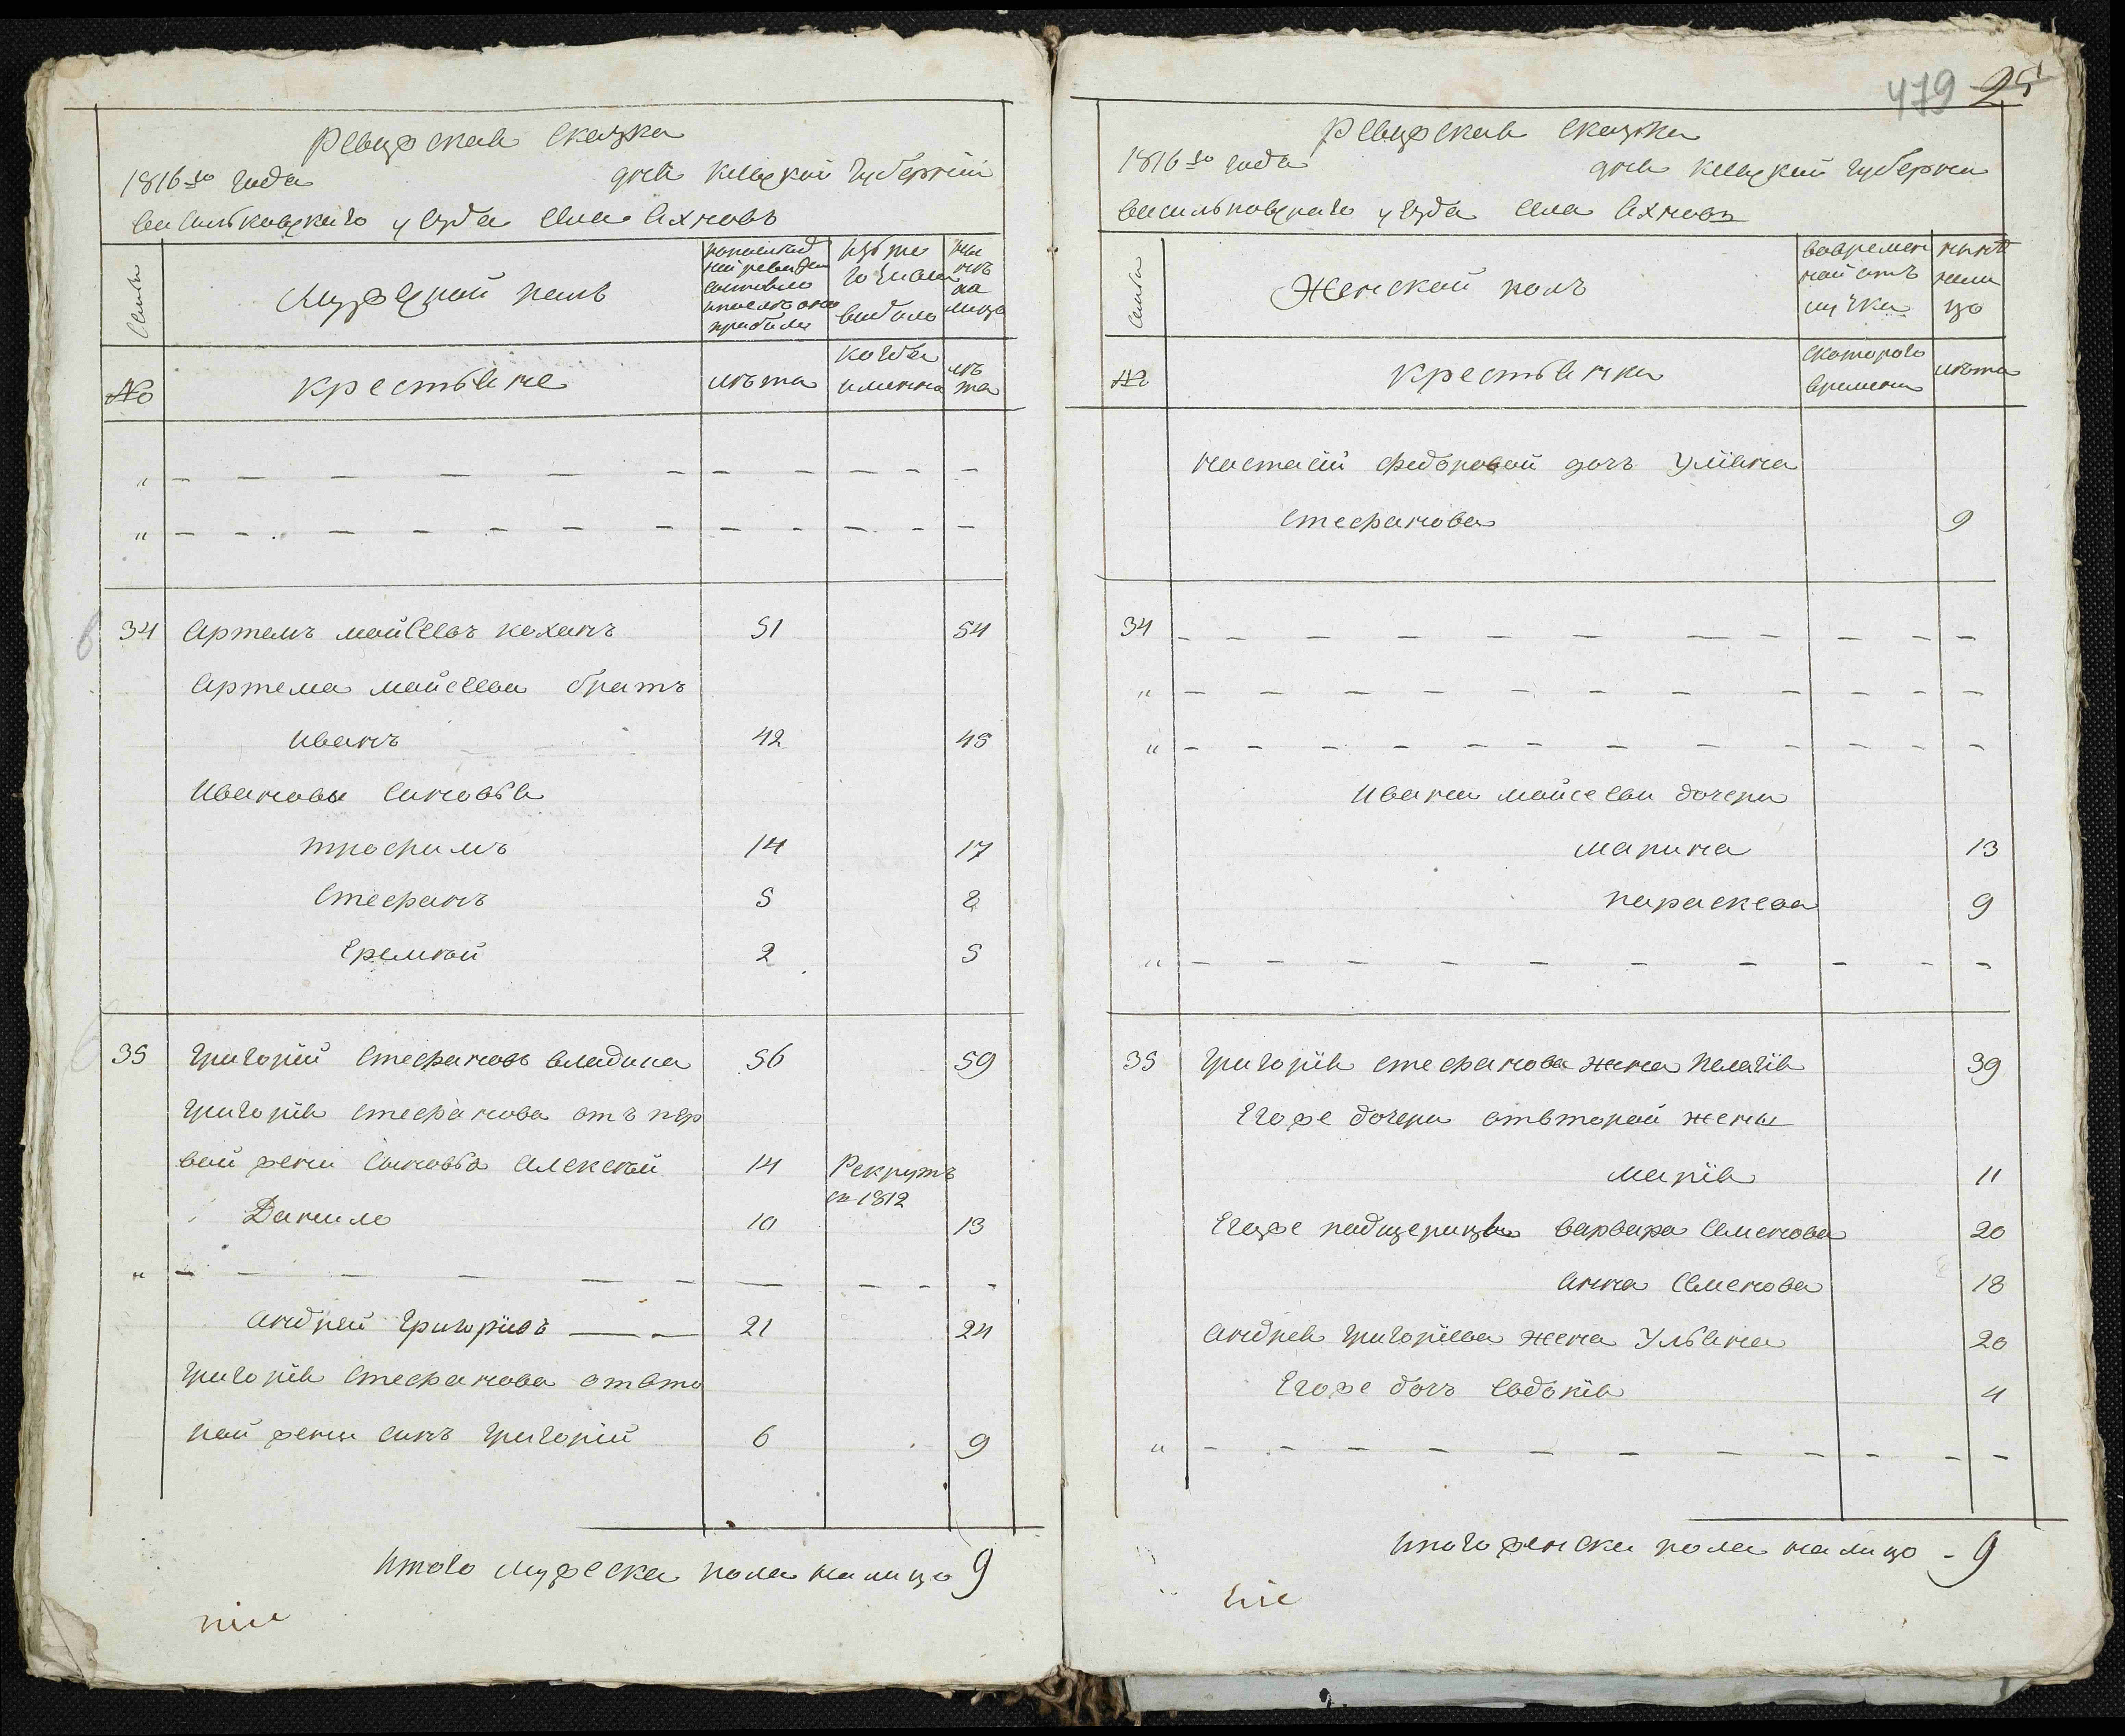 Ревизская сказка
1816го года дня Киевской Губернии
Васильковскаго уезда села Яхновъ
Семьи
Мужеской полъ
по последней ревизии состояло и после оной прибыло
изъ того числа выбыло
ныне на лицо
№
крестьяне
лѣта
когда имянно
лѣта
" — — — — — — — — — — —
" — — — — — — — — — — —
34 Артемъ мойсеевъ коханъ 51 54
Артема мойсеева братъ
Иванъ 42 45
Ивановы сыновья
трофимъ 14 17
Стефанъ 5 8
Еремѣй 2 5
35 Григорий Стефановъ владика 56 59
Григория Стефанова отъ пер
вой жены сыновья Алексѣй 14 Рекрутъ
въ 1812
Данило 10 13
" — — — — — — — — — —
Андрей Григориевъ — — 21 24
Григория Стефанова отвто
рой жены сынъ Григорий 6 9
Итого мужеска пола на лицо 9
479 25
Ревизская сказка
1816го года дня Киевской Губернии
Васильковскаго уезда села Яхновъ
Семьи
Женской полъ
вовременной отлучки
нынѣ налицо
№
крестьянки
скоторого времени
лѣта
настасии федоровой дочъ Улияна
Стефанова 9
34 — — — — — — — — — — —
" — — — — — — — — — — —
" — — — — — — — — — — —
Ивана мойсеева дочери
марина 13
параскева 9
" — — — — — — — — — —
35 Григория стефанова жена Пелагия 39
Егоже дочери отвторой жены
Мария 11
Егоже падщерицы варвара Семенова 20
анна Семенова 18
Андрея Григориева жена Ульяна 20
Егоже дочъ Евдокия 4
" — — — — — — — — — — —
Итого женска пола на лицо - 9